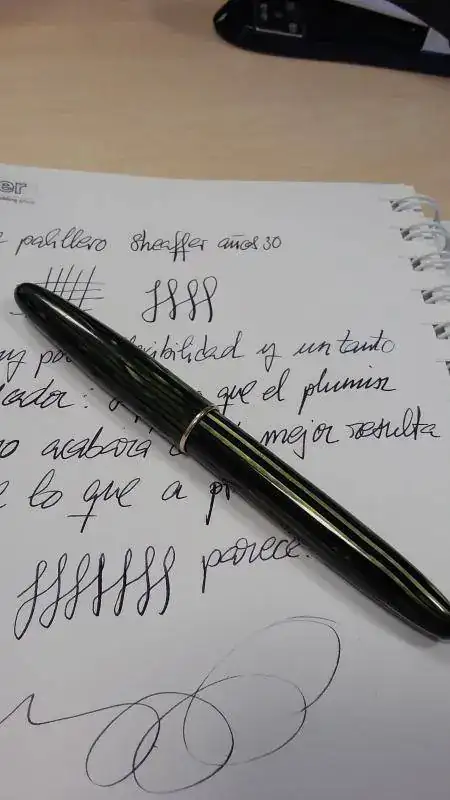 er
palillero Sheaffer años 30
ffff
y un tanto
que el plumín
acabará mejor resulta
lo que a
fffffff parece.